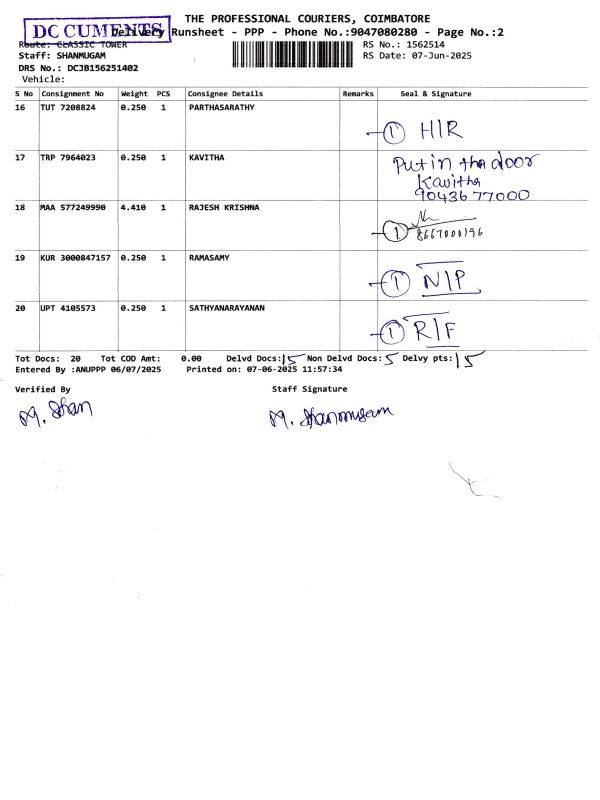 THE PROFESSIONAL COURIERS, COIMBATORE
DOCUMENTS
Delivery Runsheet - PPP - Phone No.:9047080280 - Page No.:2
Route: CLASSIC TOWER
RS No.: 1562514
Staff: SHANMUGAM
RS Date: 07-Jun-2025
DRS No.: DCJB156251402
Vehicle:
S No Consignment No Weight PCS Consignee Details Remarks Seal & Signature
16 TUT 7208824 0.250 1 PARTHASARATHY 1 H/R
17 TRP 7964023 0.250 1 KAVITHA Put in tha door
Kavitha
90436 77000
18 MAA 577249990 4.410 1 RAJESH KRISHNA 1 8667000196
19 KUR 3000847157 0.250 1 RAMASAMY 1 N/P
20 UPT 4105573 0.250 1 SATHYANARAYANAN 1 R/F
Tot Docs: 20 Tot COD Amt: 0.00 Delvd Docs: 15 Non Delvd Docs: 5 Delvy pts: 15
Entered By :ANUPPP 06/07/2025 Printed on: 07-06-2025 11:57:34
Verified By Staff Signature
M. Shan M. Shanmugam